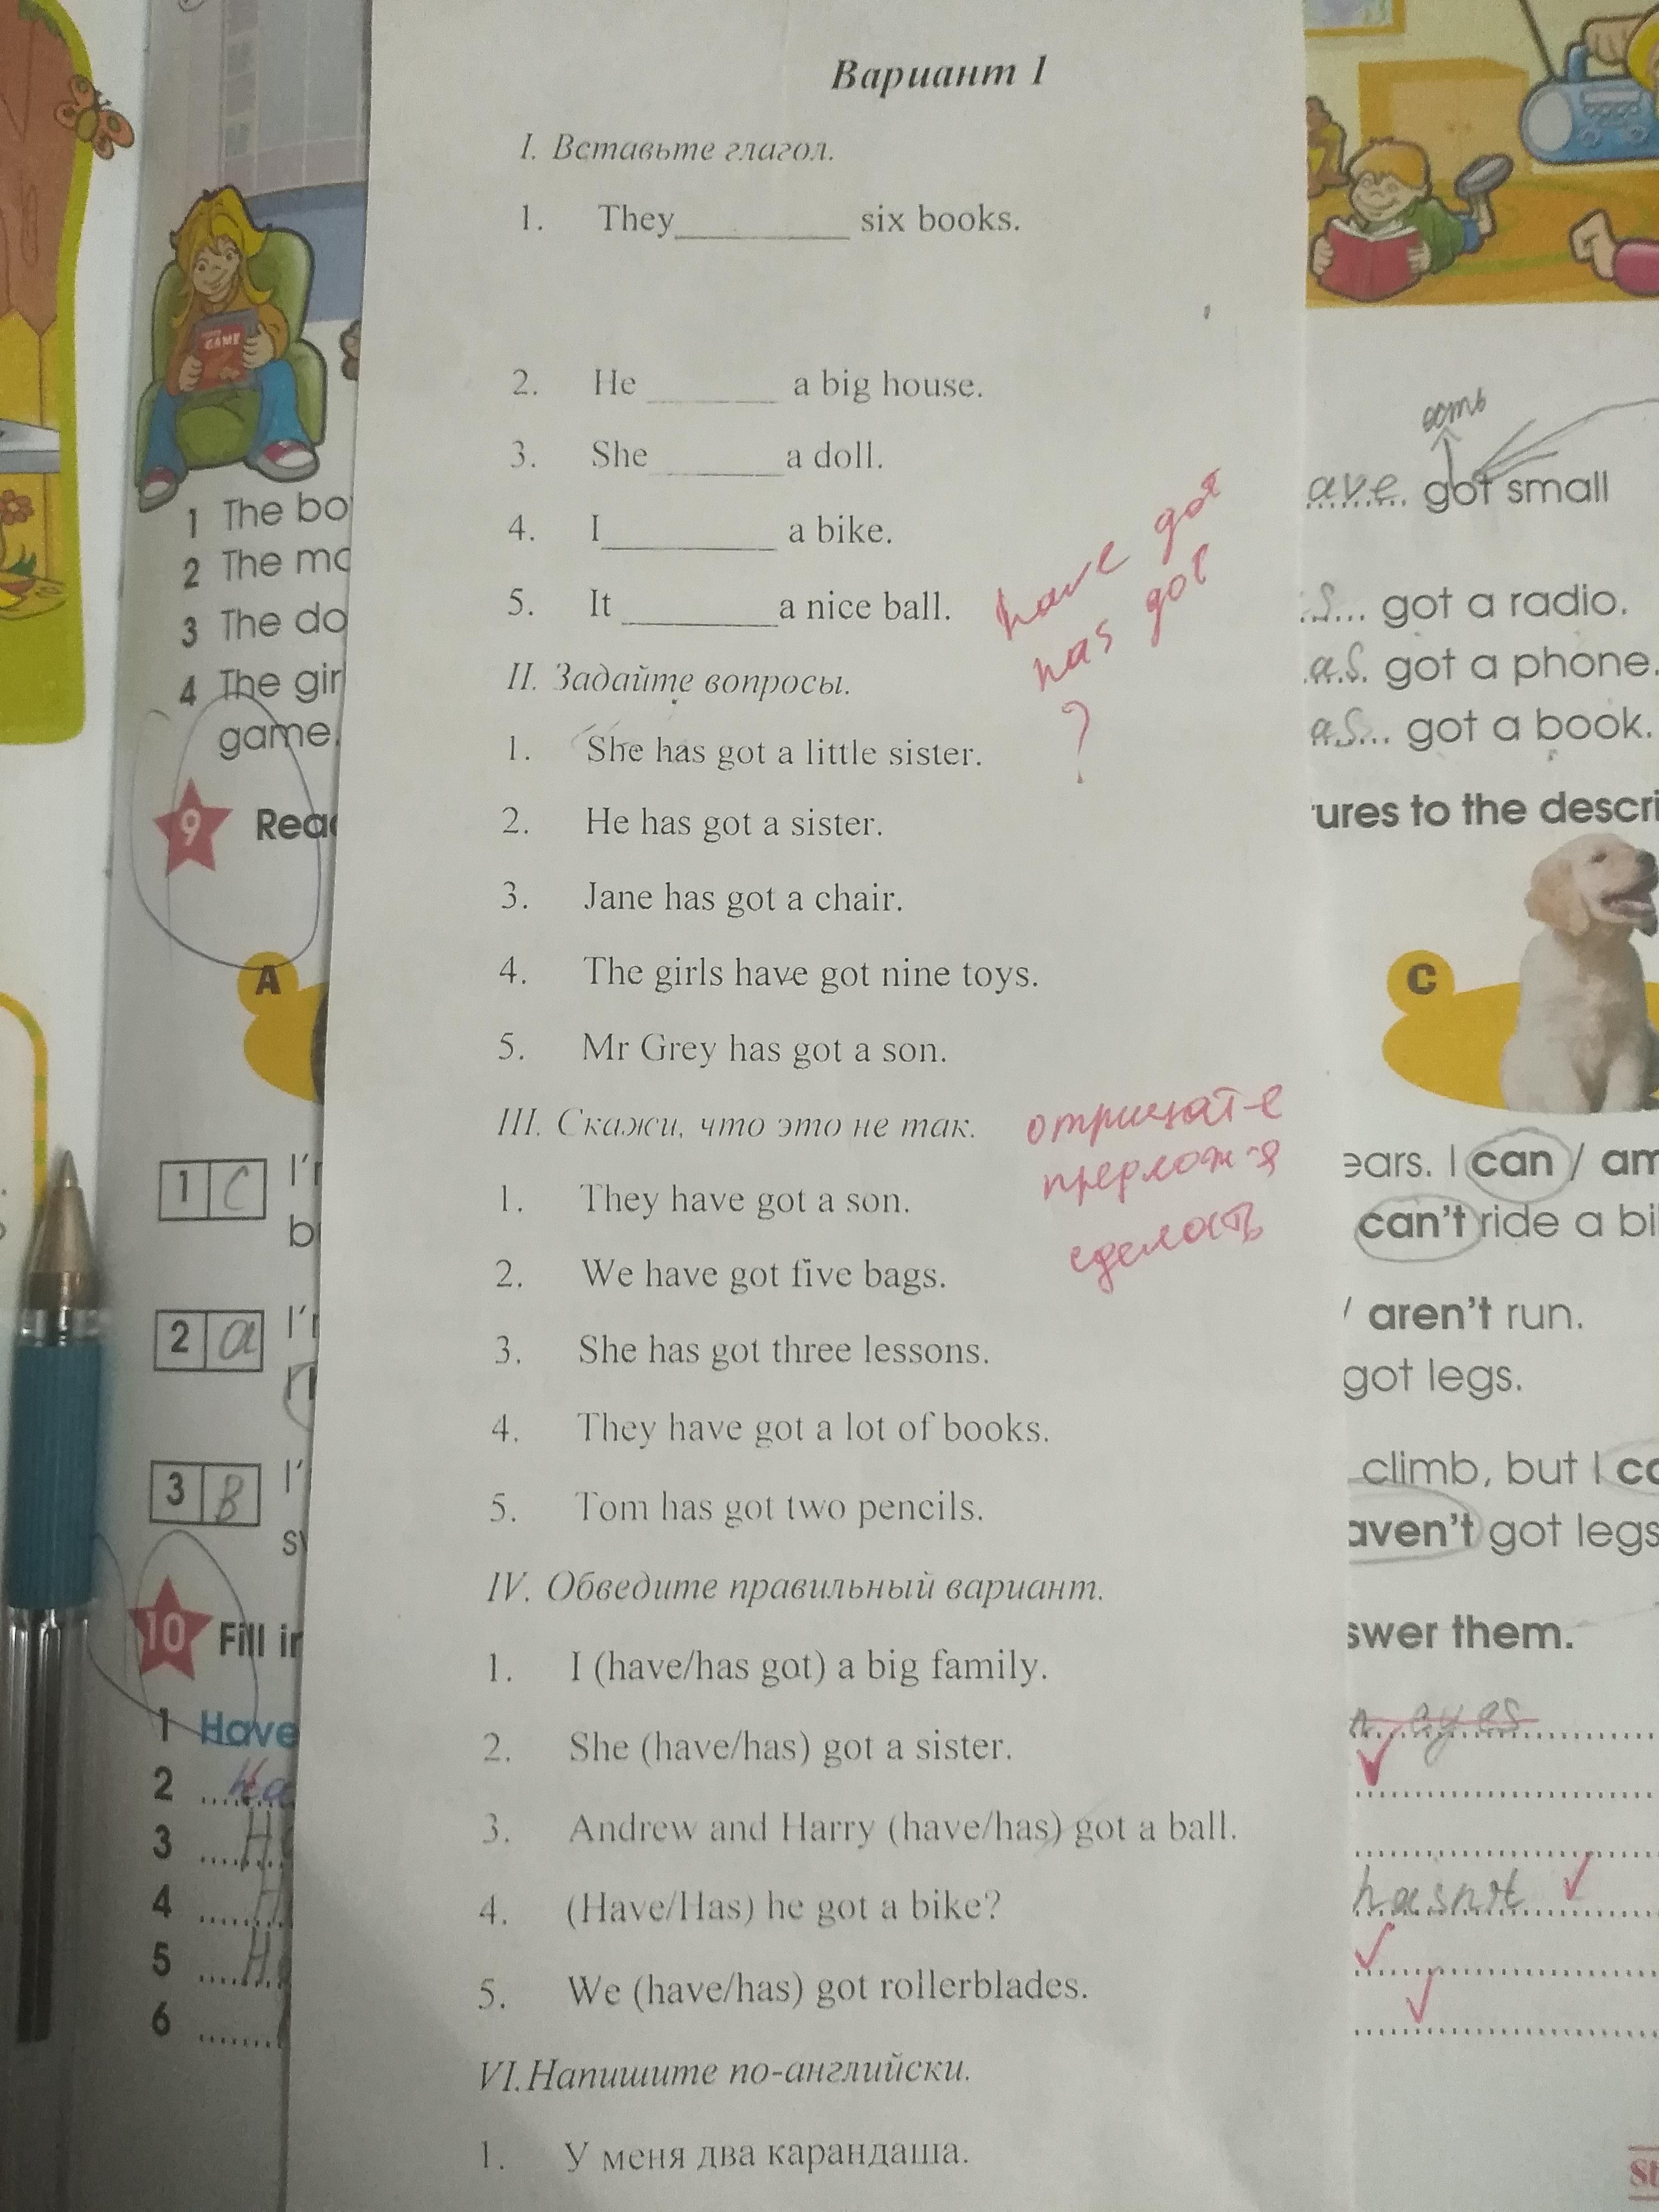 Вариант 1
I. Вставьте глагол.
1. They__________ six books.
2. He _______ a big house.
3. She _______ a doll.
4. I__________ a bike.
5. It _________ a nice ball.
have got
has got
II. Задайте вопросы.
?
1. She has got a little sister.
2. He has got a sister.
3. Jane has got a chair.
4. The girls have got nine toys.
5. Mr Grey has got a son.
III. Скажи, что это не так.
отрицат-е
предлож-я
сделать
1. They have got a son.
2. We have got five bags.
3. She has got three lessons.
4. They have got a lot of books.
5. Tom has got two pencils.
IV. Обведите правильный вариант.
1. I (have/has got) a big family.
2. She (have/has) got a sister.
3. Andrew and Harry (have/has) got a ball.
4. (Have/Has) he got a bike?
5. We (have/has) got rollerblades.
VI. Напишите по-английски.
1. У меня два карандаша.
GAME
1 The bo
2 The mo
3 The do
4 The girl
game.
9 Read
A
1 C I'
2 a I'
3 B I'
10 Fill in
1 Have
2
3
4
5
6
есть
ave got small
s got a radio.
as got a phone.
as got a book.
tures to the descri
C
ears. I can / am
can't ride a bi
/ aren't run.
got legs.
climb, but I ca
aven't got legs
swer them.
eyes
hasn't